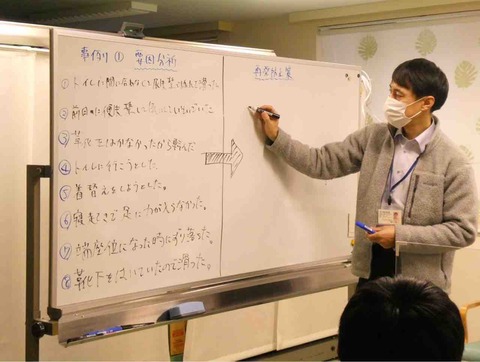 事例① 要因分析
①トイレに間に合わなくて
②前日に
③靴下をはかなかったから転んだ
④トイレに行こうとした。
⑤着替えをしようとした。
⑥寝起きで足に力が入らなかった。
⑦端座位になった時にずり落ちた。
⑧靴下をはいていたので滑った。
再発防止策